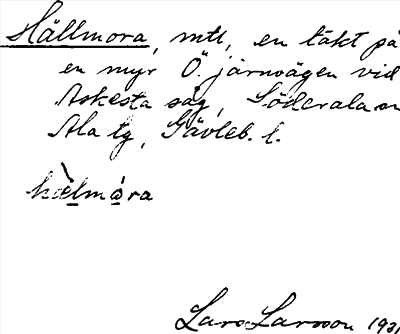 Hällmora, mtl, en täkt på
en myr Ö. järnvägen vid
Askesta såg, Söderala sn
Ala tg, Gävleb. l.
hælmora
Lars Larsson 193